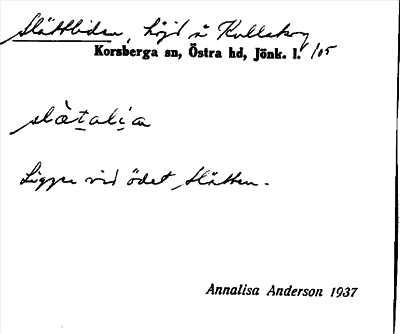 Slättliden, höjd å Kullskog
Korsberga sn, Östra hd, Jönk. l. /05
slàtalia
Ligger vid ödet Slätten.
Annalisa Anderson 1937